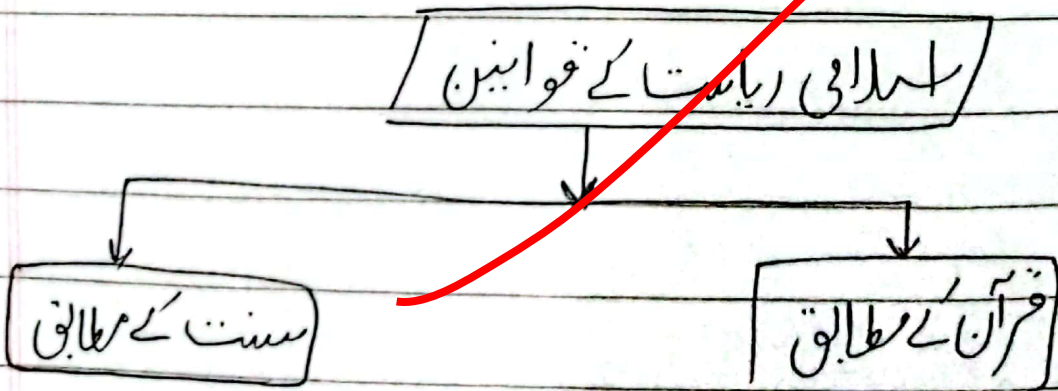 اسلامی ریاست کے قوانین
قرآن کے مطابق
سنت کے مطابق